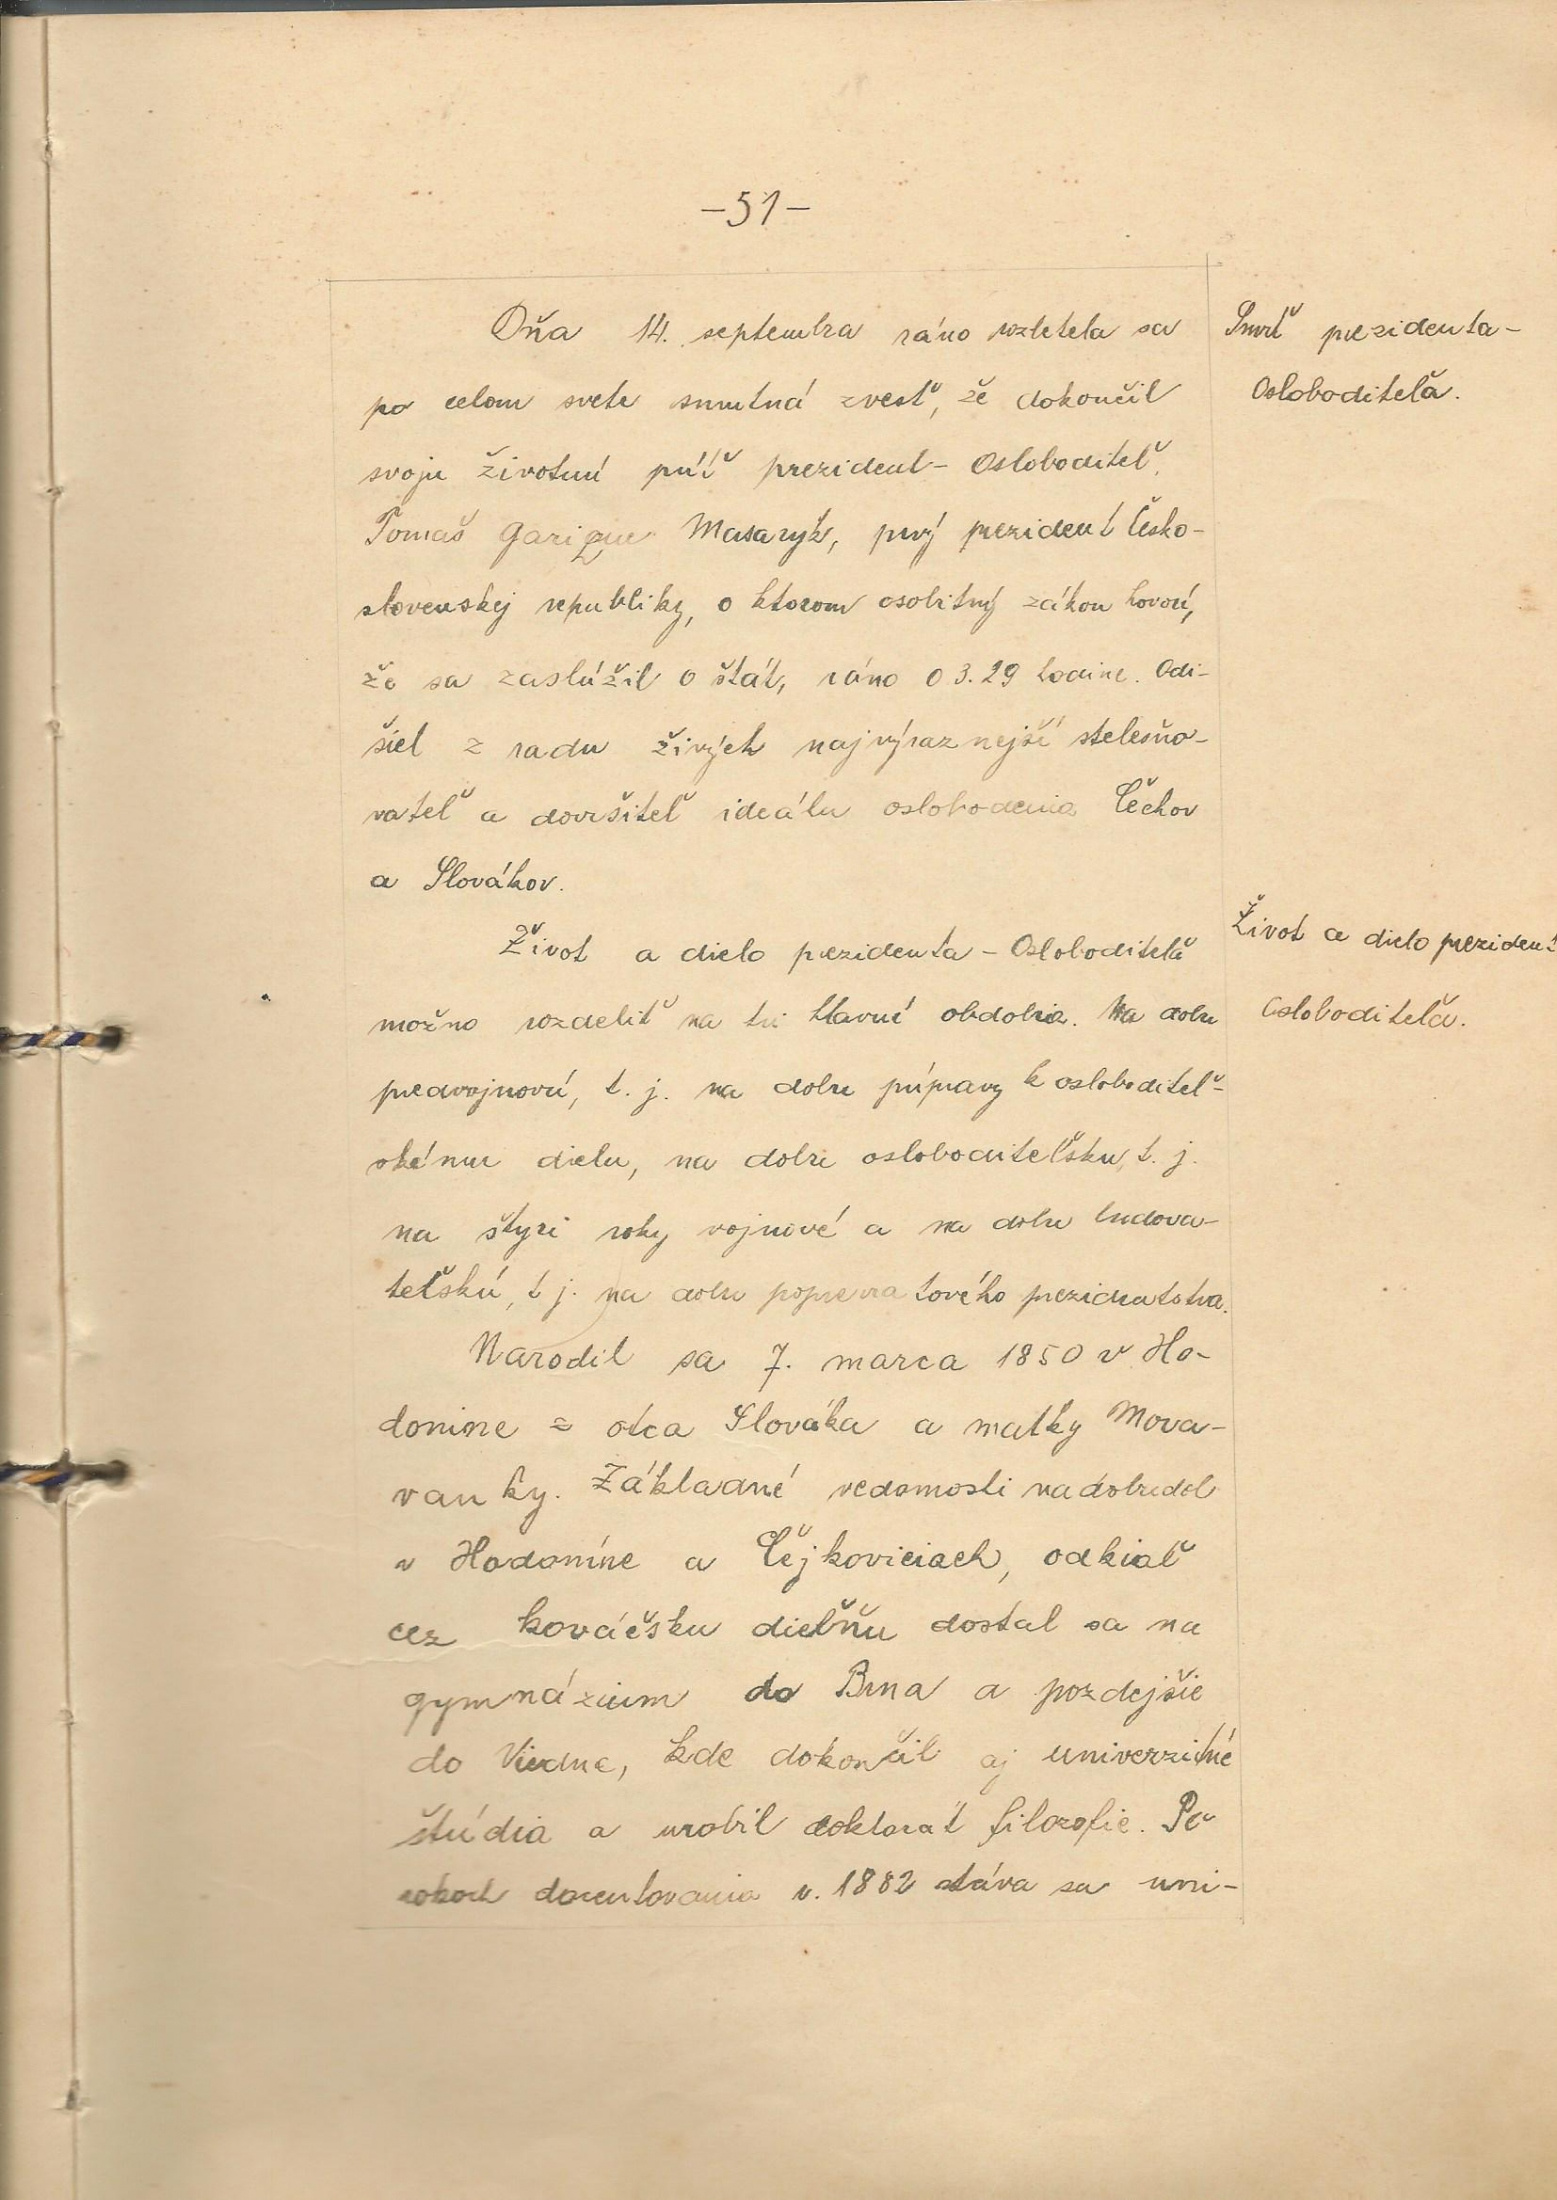 -51-
Dňa 14. septembra ráno rozletela sa
Smrť prezidenta-
po celom svete smutná zvesť, že dokončil
Osloboditeľa.
svoju životnú púť prezident- Osloboditeľ,
Tomaš Garigue Masaryk, prvý prezident Česko-
slovenskej republiky, o ktorom osobitný zákon hovorí,
že sa zaslúžil o štát, ráno o 3.29 hodine. Odi-
šiel z radu živých najvýraznejší stelesňo-
vateľ a dovršiteľ ideálu oslobodenia Čechov
a Slovákov.
Život a dielo prezidenta - Osloboditeľa
Život a dielo prezident
možno rozdeliť na tri hlavné obdobia. Na dobu
Osloboditeľa.
predvojnovú, t. j. na dobu prípravy k osloboditeľ-
skému dielu, na dobu osloboditeľsku, t. j.
na štyri roky vojnové a na dobu budova-
teľskú, t j. na dobu poprevratového prezidentstva.
Narodil sa 7. marca 1850 v Ho-
doníne z otca Slováka a matky Mora-
vanky. Základné vedomosti nadobudol
v Hodoníne a Čejkoviciach, odkiaľ
cez kováčsku dielňu dostal sa na
gymnázium do Brna a pozdejšie
do Viedne, kde dokončil aj univerzitné
štúdia a urobil doktorát filozofie. Po
rokoch docentovania r. 1882 stáva sa uni-